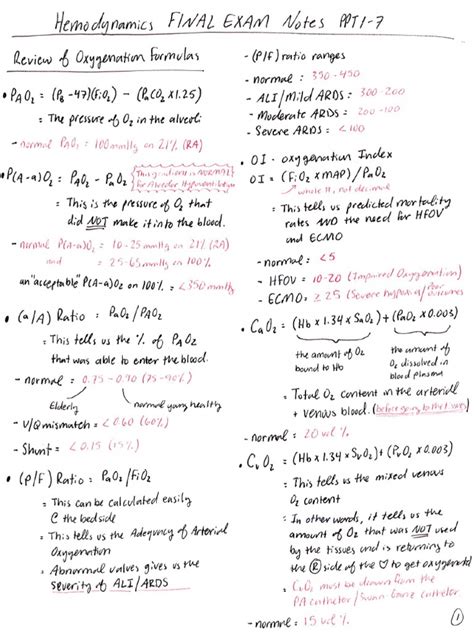 Hemodynamics FINAL EXAM Notes PPT 1-7
Review of Oxygenation Formulas
• PAO₂ = (PB -47)(FiO₂) - (PaCO₂ x 1.25)
= The pressure of O₂ in the alveoli
- normal PaO₂ = 100mmHg on 21% (RA)
• P(A-a)O₂ = PAO₂ - PaO₂
This gradient is NORMAL
for Alveolar Hypoventilation
= This is the pressure of O₂ that
did NOT make it into the blood.
- normal P(A-a)O₂ = 10-25mmHg on 21% (RA)
and = 25-65mmHg on 100%
an "acceptable" P(A-a)O₂ on 100% = <350mmHg
• (a/A) Ratio = PaO₂/PAO₂
= This tells us the % of PAO₂
that was able to enter the blood.
- normal = 0.75 - 0.90 (75-90%)
Elderly
normal young healthy
- V/Q mismatch = <0.60 (60%)
- Shunt = <0.15 (15%)
• (P/F) Ratio = PaO₂/FiO₂
= This can be calculated easily
@ the bedside
= This tells us the Adequacy of Arterial
Oxygenation
= Abnormal values gives us the
severity of ALI/ARDS
- (P/F) ratio ranges
- normal: 350-450
- ALI/Mild ARDS: 200-300
- Moderate ARDS: 100-200
- Severe ARDS: <100
• OI - oxygenation Index
OI = (FiO₂ x MAP)/PaO₂
whole #, not decimal
= This tells us predicted mortality
rates AND the need for HFOV
and ECMO
- normal: <5
- HFOV = 10-20 (Impaired Oxygenation)
- ECMO: ≥ 25 (Severe hypoxemia/Poor
outcomes
• CaO₂ = (Hb x 1.34 x SaO₂) + (PaO₂ x 0.003)
the amount of O₂
bound to Hb
the amount of
O₂ dissolved in
blood plasma
= Total O₂ content in the arterial
+ venous blood.
- normal = 20 vol %
• CvO₂ = (Hb x 1.34 x SvO₂) + (PvO₂ x 0.003)
= This tells us the mixed venous
O₂ content
= In other words, it tells us the
amount of O₂ that was NOT used
by the tissues and is returning to
the Ⓡ side of the ♡ to get oxygenated
= CvO₂ must be drawn from the
PA catheter/Swan-Ganz catheter
- normal = 15 vol %
①